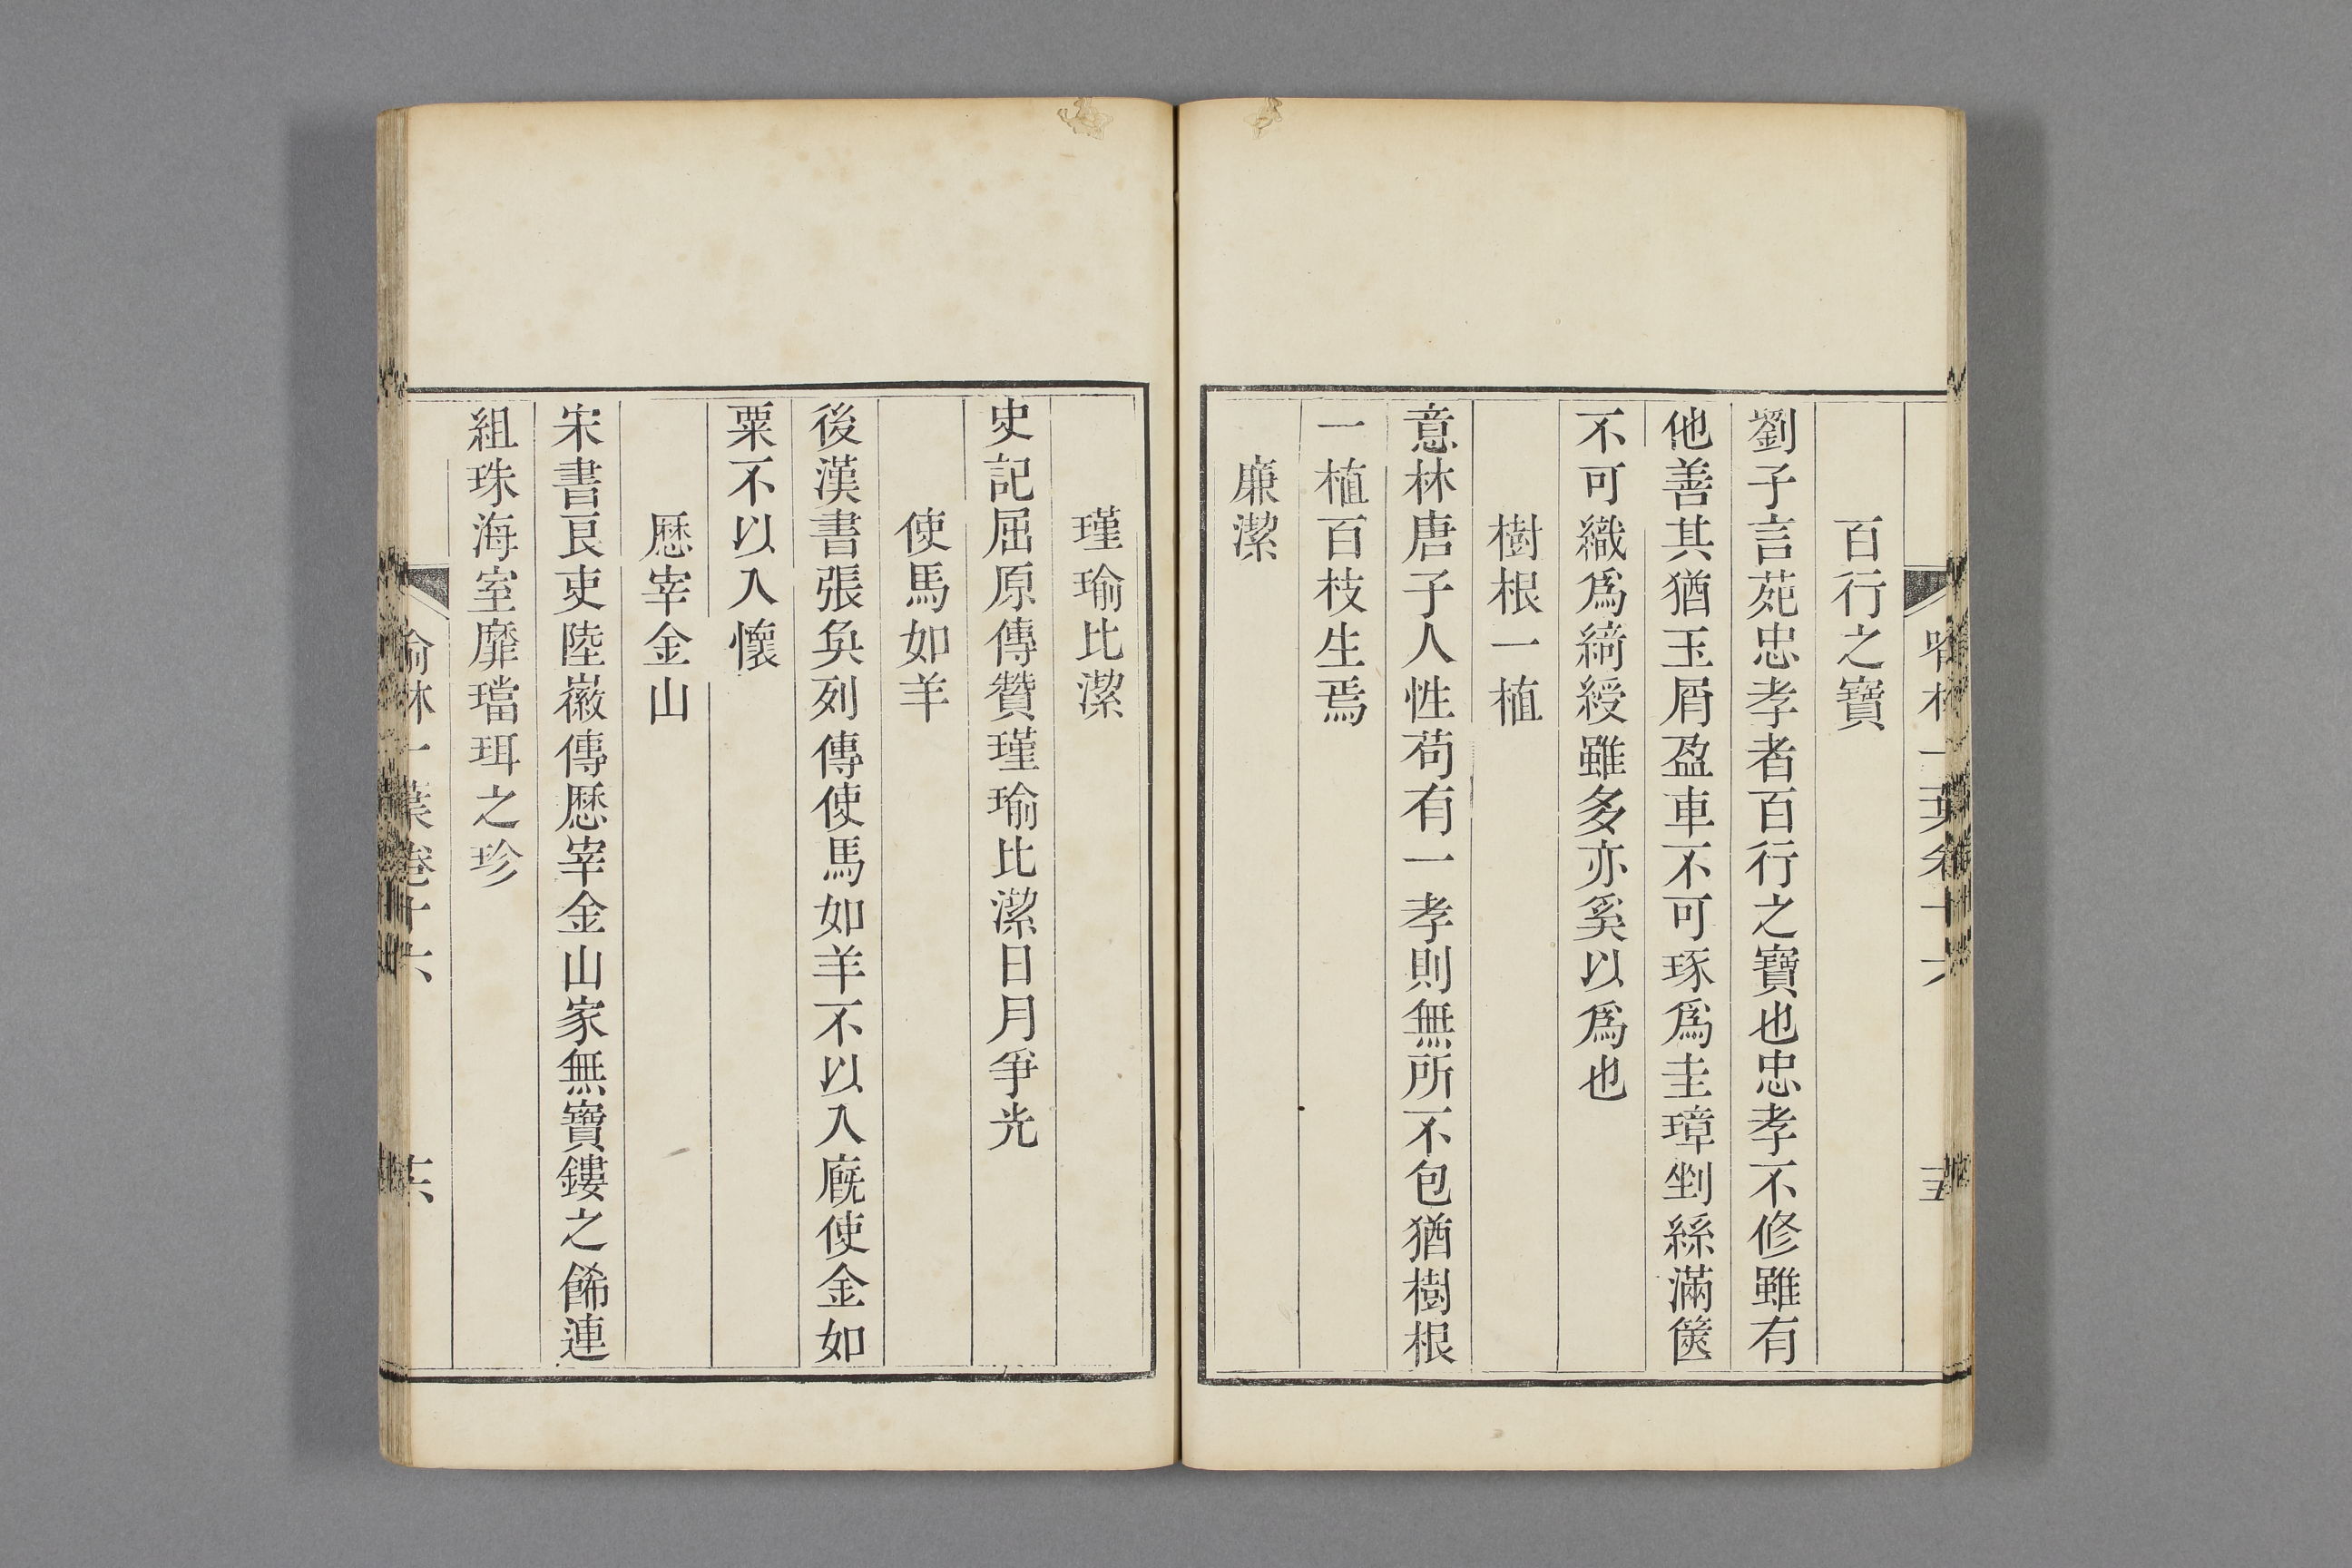 百行之寶
劉子言苑忠孝者百行之寶也忠孝不修雖有
他善其猶玉屑盈車不可琢爲圭璋剉絲滿篋
不可織爲綺綬雖多亦奚以爲也
樹根一植
意林唐子人性苟有一孝則無所不包猶樹根
一植百枝生焉
廉潔
瑾瑜比潔
史記屈原傳贊瑾瑜比潔日月爭光
使馬如羊
後漢書張奐列傳使馬如羊不以入廐使金如
粟不以入懷
歷宰金山
宋書良吏陸徽傳歷宰金山家無寶鏤之餙連
組珠海室靡璫珥之珍
喻林一葉卷十六